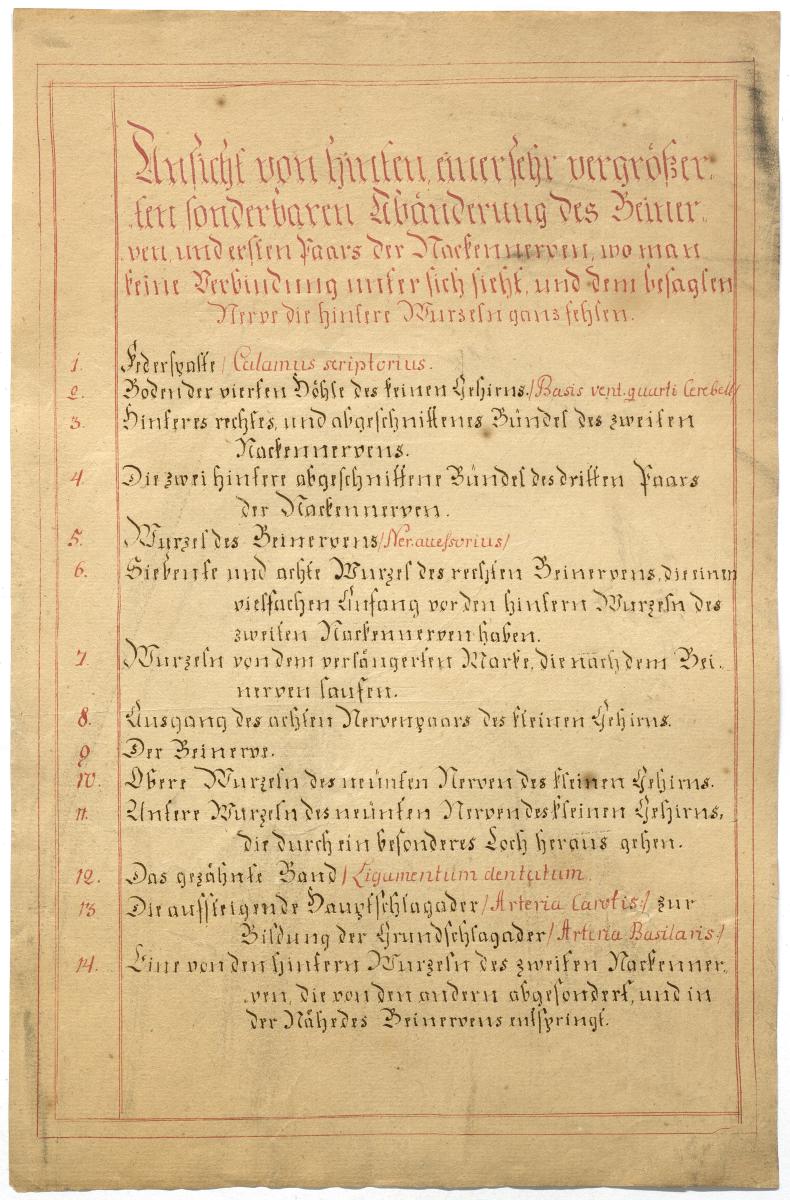 Ansicht von hinten, einer sehr vergrößer,,
,,ten sonderbaren Abänderung des Beiner,,
,,ven, und ersten Paars der Nackennerven, wo man
keine Verbindung unter sich sieht, und dem besagten
Nerve die hintere Wurzeln ganz fehlen.
1. Federspalte / Calamus scriptorius.
2. Boden der vierten Höhle des kleinen Gehirns. /Basis vent. quarti Cerebell/
3. Hinteres rechtes, und abgeschnittenes Bündel des zweiten
Nackennervens.
4. Die zwei hintere abgeschnittene Bündel des dritten Paars
der Nackennerven.
5. Wurzel des Beinervens /Ner. accessorius/
6. Siebente und achte Wurzel des rechten Beinervens, die einen
vielfachen Anfang vor den hintern Wurzeln des
zweiten Nackennerven haben.
7. Wurzeln von dem verlängerten Marke, die nach dem Bei,,
nerven laufen.
8. Ausgang des achten Nervenpaars des kleinen Gehirns.
9 Der Beinerve.
10. Obere Wurzeln des neunten Nerven des kleinen Gehirns.
11. Untere Wurzeln des neunten Nerven des kleinen Gehirns,
die durch ein besonderes Loch heraus gehen.
12. Das gezähnte Band /Ligamentum dentatum.
13 Die aufsteigende Hauptschlagader /Arteria Carotis:/ zur
Bildung der Grundschlagader /Arteria Basilaris:/
14. Eine von den hintern Wurzeln des zweiten Nackenner,,
,,ven, die von den andern abgesondert, und in
der Nähe des Beinervens entspringt.